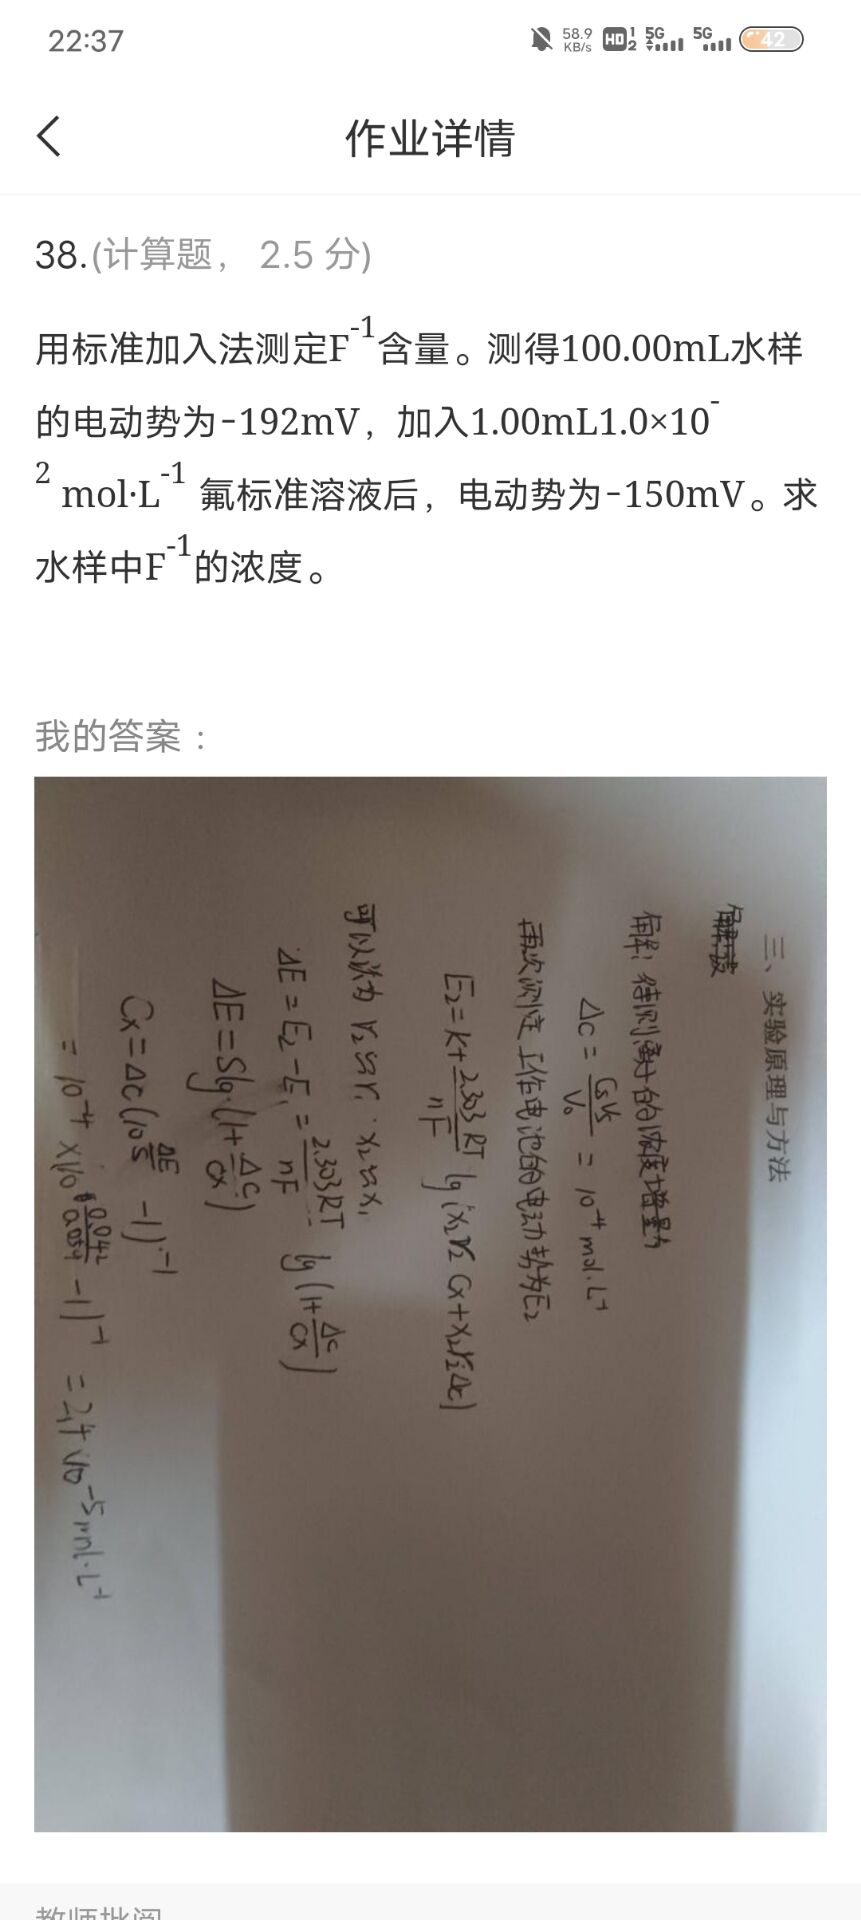 22:37
58.9 KB/s HD 1 2 5G 5G 42
作业详情
38.(计算题， 2.5 分)
用标准加入法测定F-1含量。测得100.00mL水样
的电动势为-192mV，加入1.00mL1.0×10-
2 mol·L-1 氟标准溶液后，电动势为-150mV。求
水样中F-1的浓度。
我的答案：
三、实验原理与方法
解：待测离子的浓度增量为
ΔC = CsVs/V₀ = 10⁻⁴ mol·L⁻¹
再次测定工作电池的电动势为E₂
E₂=K+2.303RT/nF lg(x₂r₂Cx+x₂r₂Δc)
可以认为 r₂≈r₁ x₂≈x₁
ΔE=E₂-E₁=2.303RT/nF lg(1+Δc/cx)
ΔE=Slg(1+Δc/cx)
Cx=Δc(10^ΔE/S -1)⁻¹
=10⁻⁴×(10^0.042/0.059 -1)⁻¹ =2.4×10⁻⁵mol·L⁻¹
教师批阅